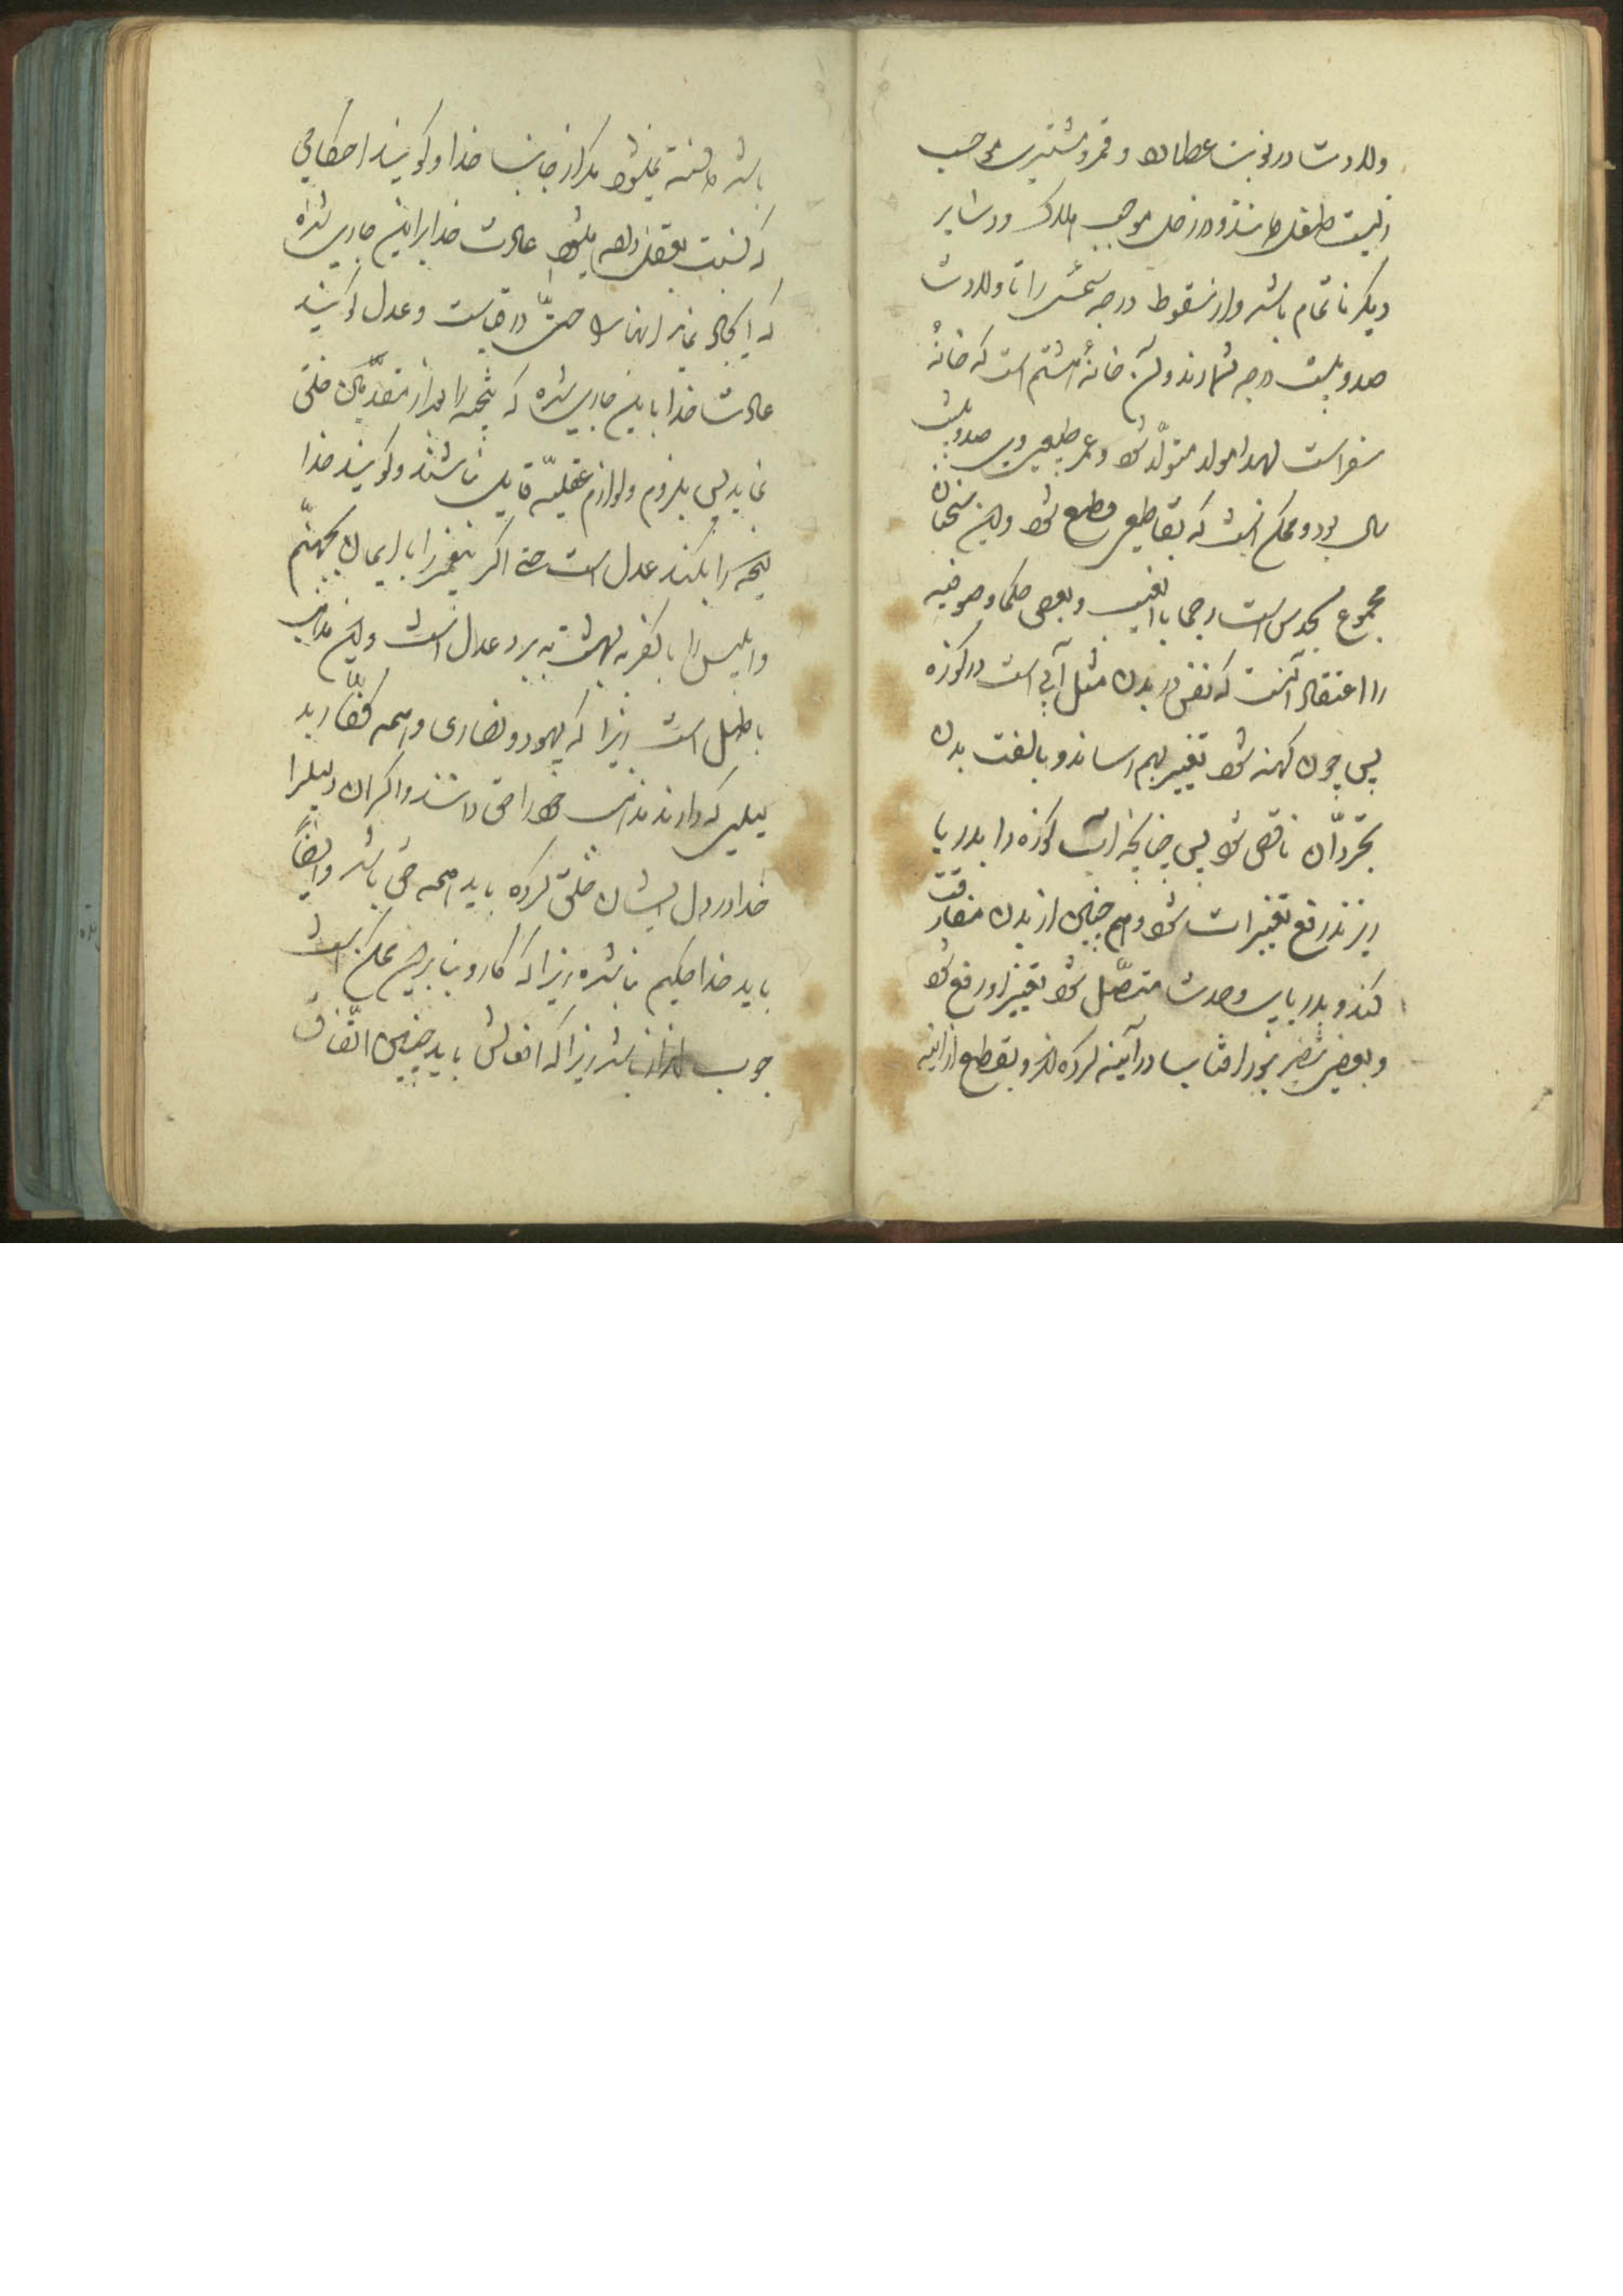 ولادت در نوبت عطارد و قمر و مشتری موجب
زیست طفل دانند و در زحل موجب هلاک و در سایر
دیگر ناتمام باشد و از سقوط درجه شمس را تا ولادت
صد و بیست درجه شمارند و آن خانهٔ هشتم است که خانهٔ
سفر است لهذا مولد متولّد شود و عمر طبیعی وی صد و بیست
سال بود و ممکن است که بقاطعی قطع شود و این سخنان
مجموع بحدس است رجما بالغیب و بعضی حکما و صوفیه
را اعتقاد آنست که نفس در بدن مثل آبی است در کوزه
پس چون کهنه شود تغییر بهم رساند و بالفت بدن
تجرد آن ناقص شود پس چنانچه آب کوزه را بدریا
ریزند رفع تغییرات شود و همچنین از بدن مفارقت
کند و بدریای وحدت متصّل شود تغییر او رفع شود
و بعضی نظیر بنور افتاب در آینه کرده‌اند و بقطع از اینه
باشد دانسته نمیشود مکر از جانب خدا و کویند احکامی
که نسبت بعقل داده میشود عادت خدا بر این جاری شده
که ایجاد نماید و عدل کویند
عادت خدا باین جاری شده که نتیجه را بعد از مقدّمتین خلق
نماید پس بلزوم و لوازم عقلیّه قایل نباشند و کویند خدا
هر چه را بکند عدل است حتی اکر پیغمبر را با ایمان بجهنّم
و ابلیس را با کفر به بهشت به برد عدل است و این مذاهب
باطل است زیرا که یهود و نصاری و همه کفّار بد
لیلی که دارند مذهب خود را حق دانند و اکر آن دلیل را
خدا در دل ایشان خلق کرده باید همه حق باشد و ایضاً
باید خدا حکیم نباشد زیرا که کار و بنا بر این ممکن است
چوب باشد زیرا که افعالش باید چنین اتّفاق